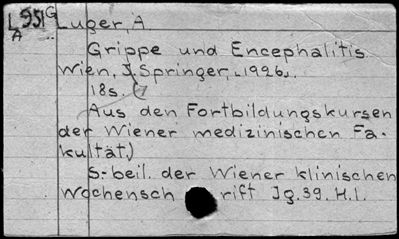 L 951 G Luger, A.
A
Grippe und Encephalitis
Wien, J. Springer, 1926.
18s. (
Aus den Fortbildungskursen
der Wiener medizinischen Fa-
kultät)
S.-beil. der Wiener klinischen
Wochensch rift Jg. 39. H.1.